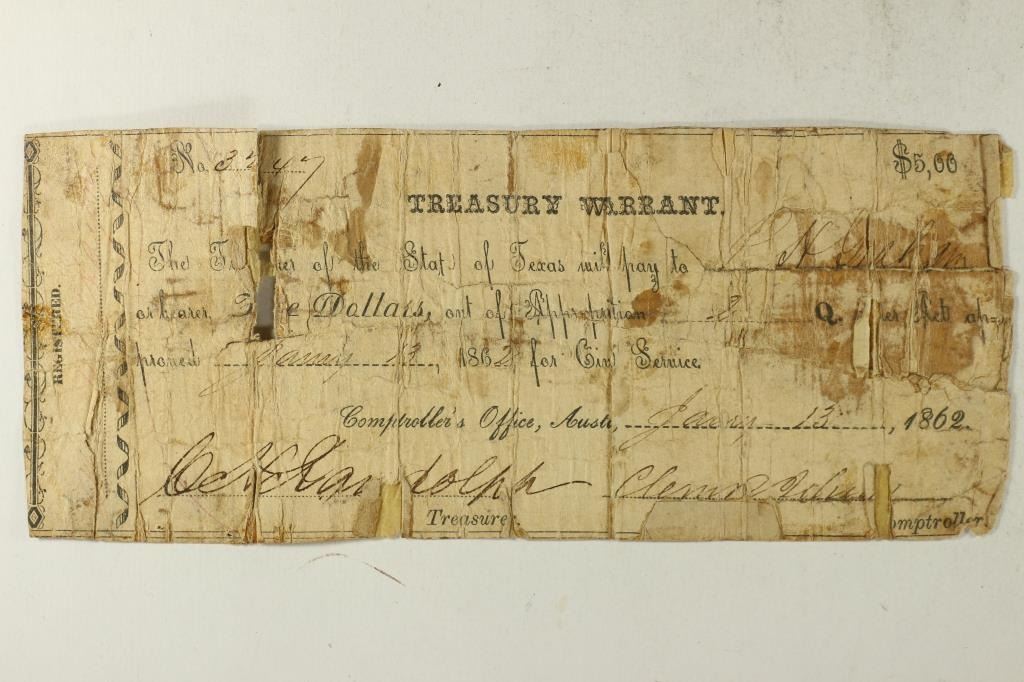 REGISTERED.
No. 3247 $5,00
TREASURY WARRANT.
The Tr er of the Stat of Texas will pay to
or bearer Dollars, out of Appropriation 2 Q. Acts ap-
proved Jany 13, 1862 for Civ Service.
Comptroller's Office, Austi, Jany 13, 1862.
C H Randolph
Treasure omptroller.